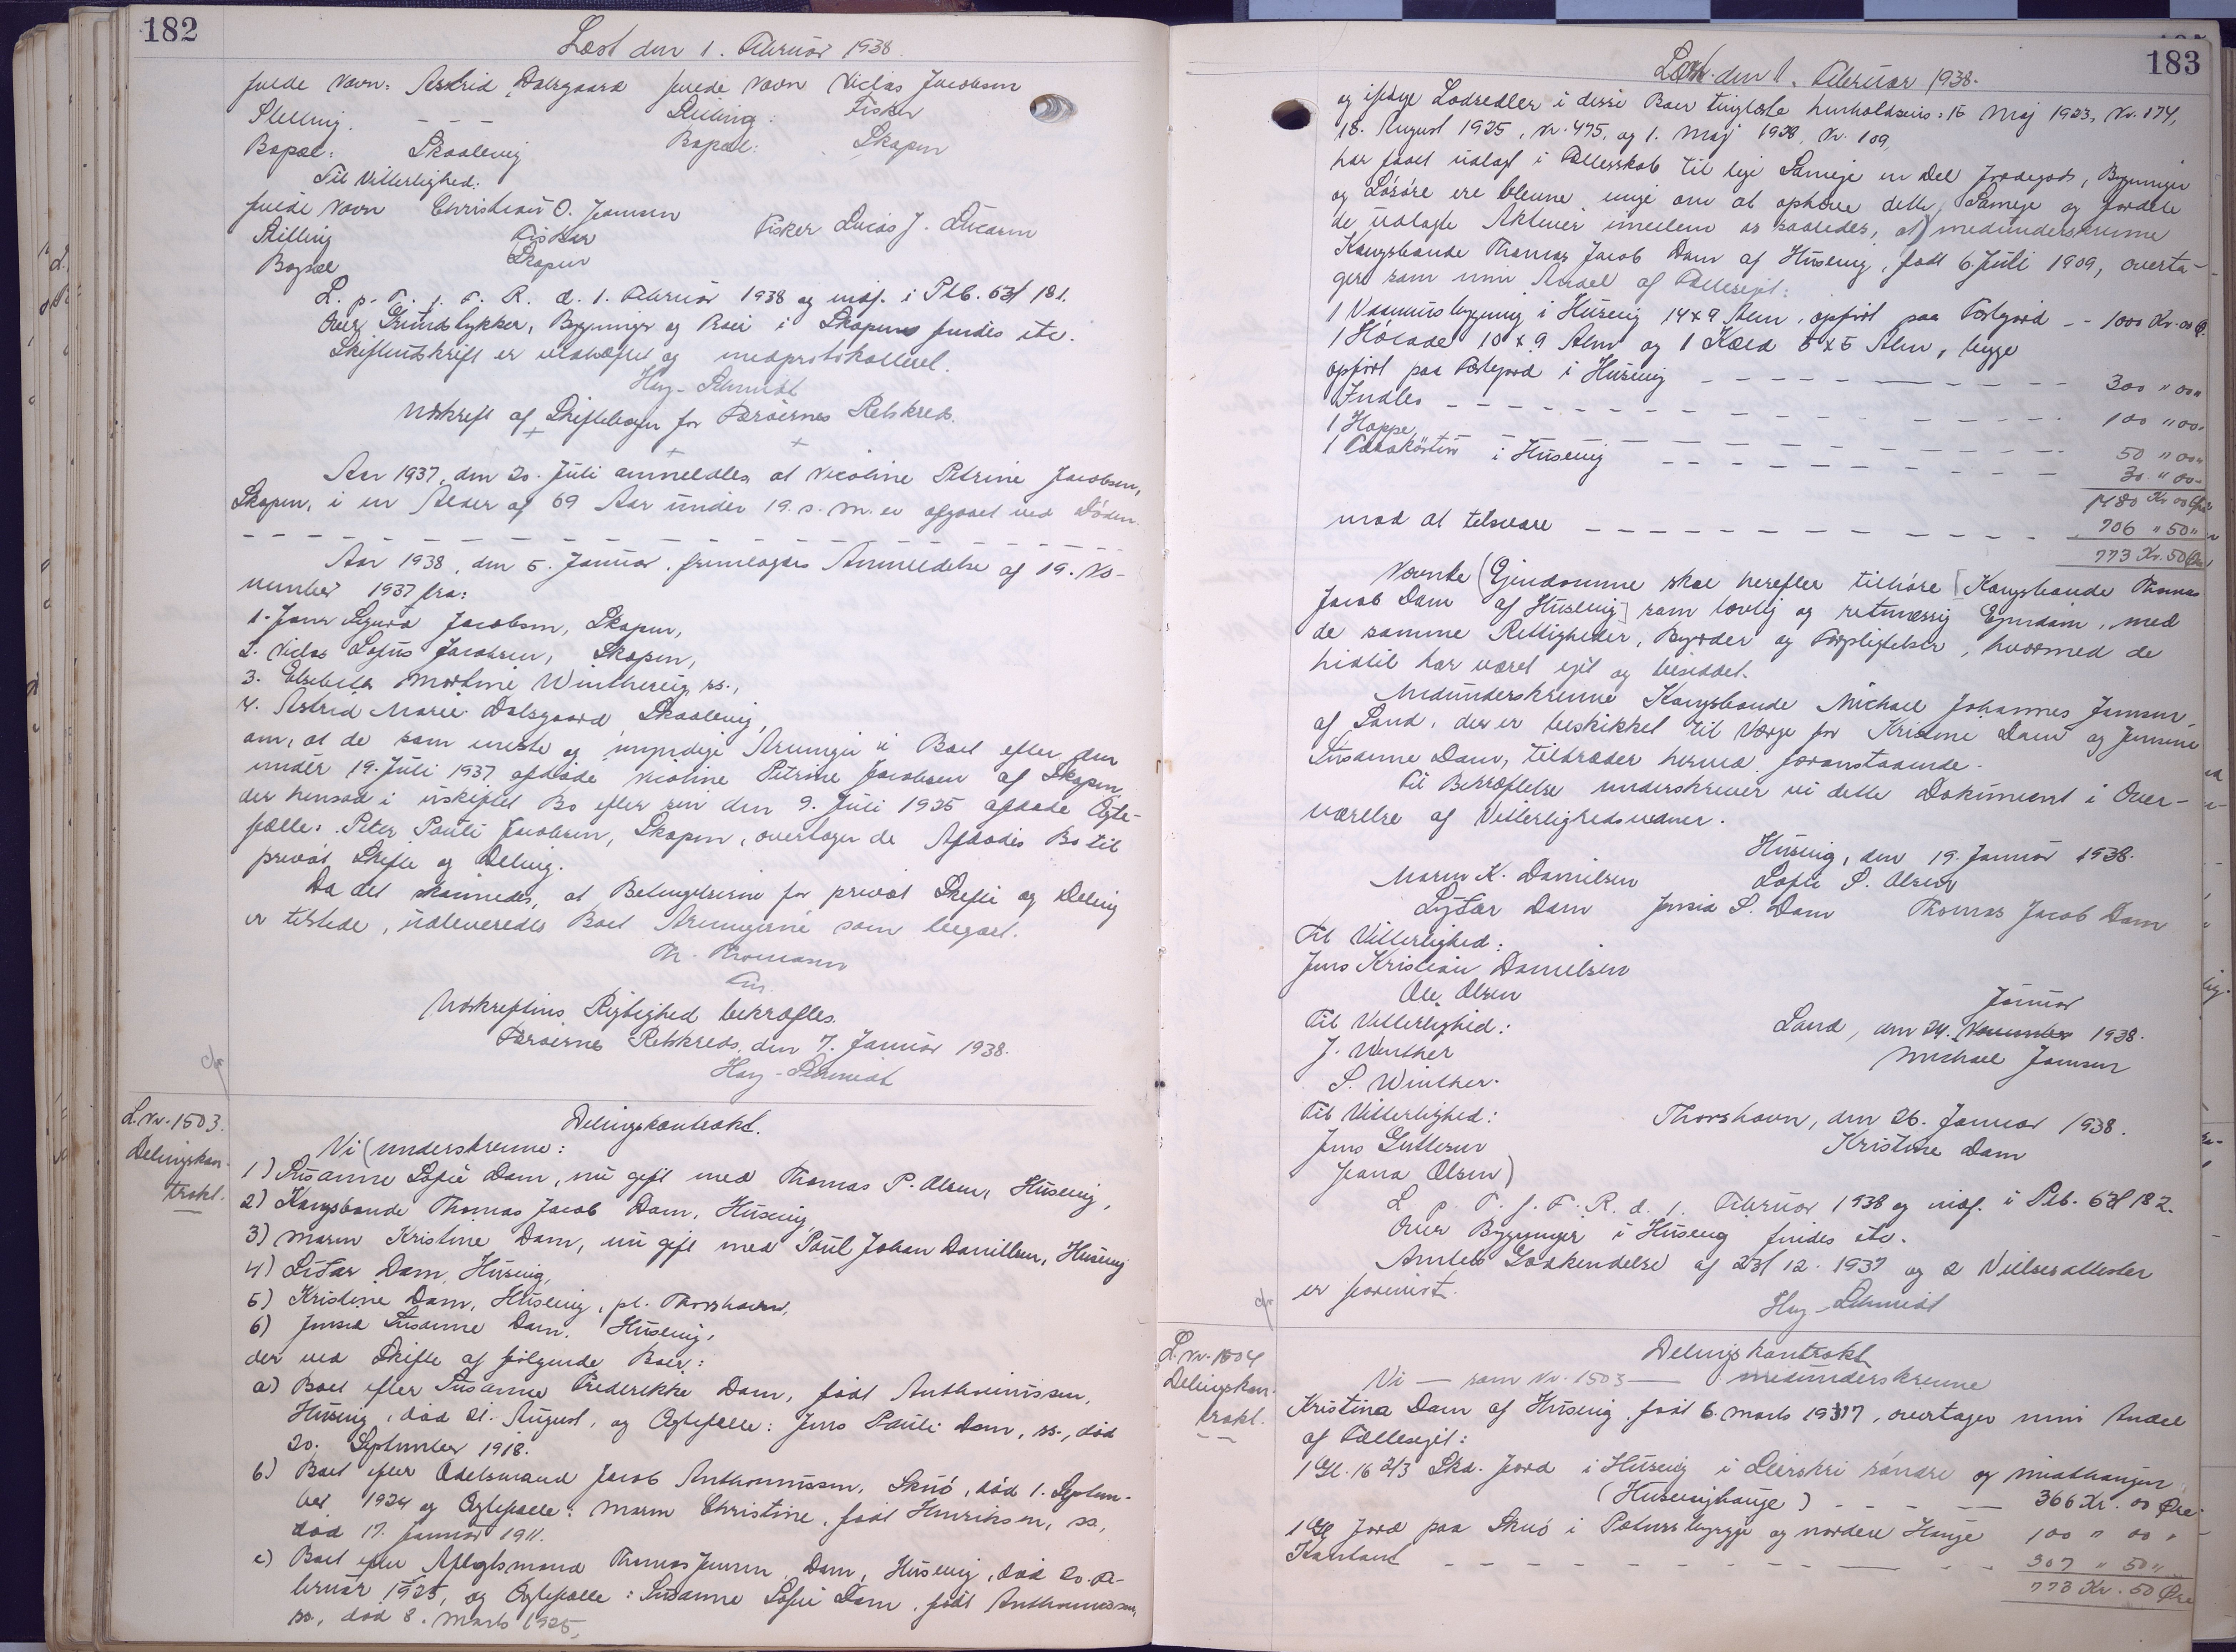 182
Læst den 1. Februar 1938.
fulde Navn: Astrid Dalsgaard fulde Navn Niclas Jacobsen
Stilling. - - - Stilling: Fisker
Bopæl: Skaalevig Bopæl: Skopun
Til Vitterlighed:
fulde Navn Christian O. Joensen
Fisker Lucas J.
Stilling Fisker
Bopæl Skopun
L. p. T. f. F. R. d. 1. Februar 1938 og indf. i Ptb. 63 f 181.
Over Grundstykker, Bygninger og Baer i Skopun findes etc.
Skifteudskrift er vedhæftet og medprotokolleret.
Hay-Schmidt
Udskrift af Skiftebogen for Færøernes Retskreds.
Aar 1937, den 20. Juli anmeldtes at Nicoline Petrine Jacobsen,
Skopun, i en Alder af 69 Aar under 19. s. M. er afgaaet ved Døden.
Aar 1938, den 5. Januar, fremlagdes Anmeldelse af 19. No-
vember 1937 fra:
1. Jens Sigurd Jacobsen, Skopun,
2. Niclas Lofus Jacobsen, Skopun,
3. Elsebeth Mortine Winthereig, ss.,
4. Astrid Marie Dalsgaard Skaalevig,
om, at de som eneste og myndige Arvinger i Boet efter den
under 19. Juli 1937 afdøde Nicoline Petrine Jacobsen af Skopun,
der hensad i uskiftet Bo efter sin den 9. Juli 1925 afdøde Ægte-
fælle: Peter Pauli Jacobsen, Skopun, overtager de Afdødes Bo til
privat Skifte og Deling.
Da det skønnedes, at Betingelserne for privat Skifte og Deling
er tilstede, udleveredes Boet Arvingerne som begært.
Th. Thomasen
Fm.
Udskriftens Rigtighed bekræftes.
Færøernes Retskreds, den 7. Januar 1938.
Hay-Schmidt
L.Nr. 1503.
Delingskon-
trakt.
Delingskontrakt.
Vi (underskrevne:
1) Susanne Sofie Dam, nu gift med Thomas P. Olsen, Húsavig,
2) Kongsbonde Thomas Jacob Dam, Húsavig,
3) Maren Kristine Dam, nu gift med Paul Johan Danielsen, Húsavig
4) Lydar Dam, Húsavig,
5) Kristine Dam, Húsavig, pt. Thorshavn,
6) Jensia Susanne Dam, Húsavig,
der ved Skifte af følgende Boer:
a) Boet efter Susanne Frederikke Dam, født Anthoniussen,
Húsavig, død 21. August, og Ægtefælle: Jens Pauli Dam, ss., død
20. September 1918.
b) Boet efter Odelsmand Jacob Anthoniussen, Skuø, død 1. Septem-
ber 1924 og Ægtefælle: Maren Christine, født Henriksen, ss,
død 17. Januar 1911.
c) Boet efter Aftægtsmand Thomas Jensen Dam, Húsavig, død 20. Fe-
bruar 1925, og Ægtefælle: Susanne Sofie Dam, født Anthoniussen,
ss, død 8. Marts 1925,
183
Læst den 1. Februar 1938.
og ifølge Lodsedler i disse Boer tinglæste henholdsvis: 15 Maj 1923, Nr. 174,
18. August 1925, Nr. 475, og 1. Maj 1928, Nr. 109,
har faaet udlagt i Fællesskab til lige Sameje en Del Jordegods, Bygninger
og Løsøre ere blevne enige om at ophæve dette Sameje og fordele
de udlagte Aktiver imellem os saaledes, at) medunderskrevne
Kongsbonde Thomas Jacob Dam af Húsavig, født 6. Juli 1909, overta-
ger som min Andel af Fællesejet:
1 Vaaningsbygning i Húsavig 14 x 9 Alen, opført paa Fæstejord - - 1000 Kr. 00 Ø.
1 Hølade 10 x 9 Alen og 1 Kæld 5 x 5 Alen, begge
opført paa Fæstejord i Húsavig - - - - - - - - - - 300 " 00 "
Indbo - - - - - - - - - - - - - - 100 " 00 "
1 Hoppe, - - - - - - - - - - - - - 50 " 00 "
1 i Húsavig - - - - - - - - 30 " 00 "
1480 Kr 00 Øre
mod at tilsvare - - - - - - - - - - 706 " 50 "
773 Kr. 50 Øre
Nævnte (Ejendomme skal herefter tilhøre [Kongsbonde Thomas
Jacob Dam af Húsavig] som lovlig og retmæssig Ejendom, med
de samme Rettigheder, Byrder og Forpligtelser, hvormed de
hidtil har været ejet og besiddet.
Medunderskrevne Kongsbonde Michael Johannes Jensen,
af Sand, der er beskikket til Værge for Kristine Dam og Jensine
Susanne Dam, tiltræder herved foranstaaende.
Til Bekræftelse underskriver vi dette Dokument i Over-
værelse af Vitterlighedsvidner.
Húsavig, den 19. Januar 1938.
Maren K. Danielsen Sofie S. Olsen
Lydar Dam Jensia S. Dam Thomas Jacob Dam
Til Vitterlighed:
Jens Kristian Danielsen
Ole Olsen
Januar
Til Vitterlighed: Sand, den 24. November 1938.
J. Winther Michael Jensen
S. Winther.
Til Vitterlighed: Thorshavn, den 26. Januar 1938.
Jens Guttesen Kristine Dam
Joana Olsen)
L. p. T. f. F. R. d. 1. Februar 1938 og indf. i Ptb. 63 f 182.
Over Bygninger i Húsavig findes etc.
Amtets Godkendelse af 23/12. 1937 og 2 Vielsesattester
er forevist.
Hay-Schmidt
L.Nr. 1504
Delingskon-
trakt.
Delingskontrakt
Vi — som Nr. 1503 — medunderskrevne
Kristina Dam af Húsavig, født 6. Marts 1917, overtager min Andel
af Fællesejet:
1 Gl. 16 2/3 Skd. Jord i Húsavig i søndre og
(Húsavighauge) - - - - - 366 Kr. 00 Øre.
1 Gl Jord paa Skuø i og nordere Hauge 100 " 00 "
Kontant - - - - - - - - - - - - 307 " 50 "
773 Kr. 50 Øre